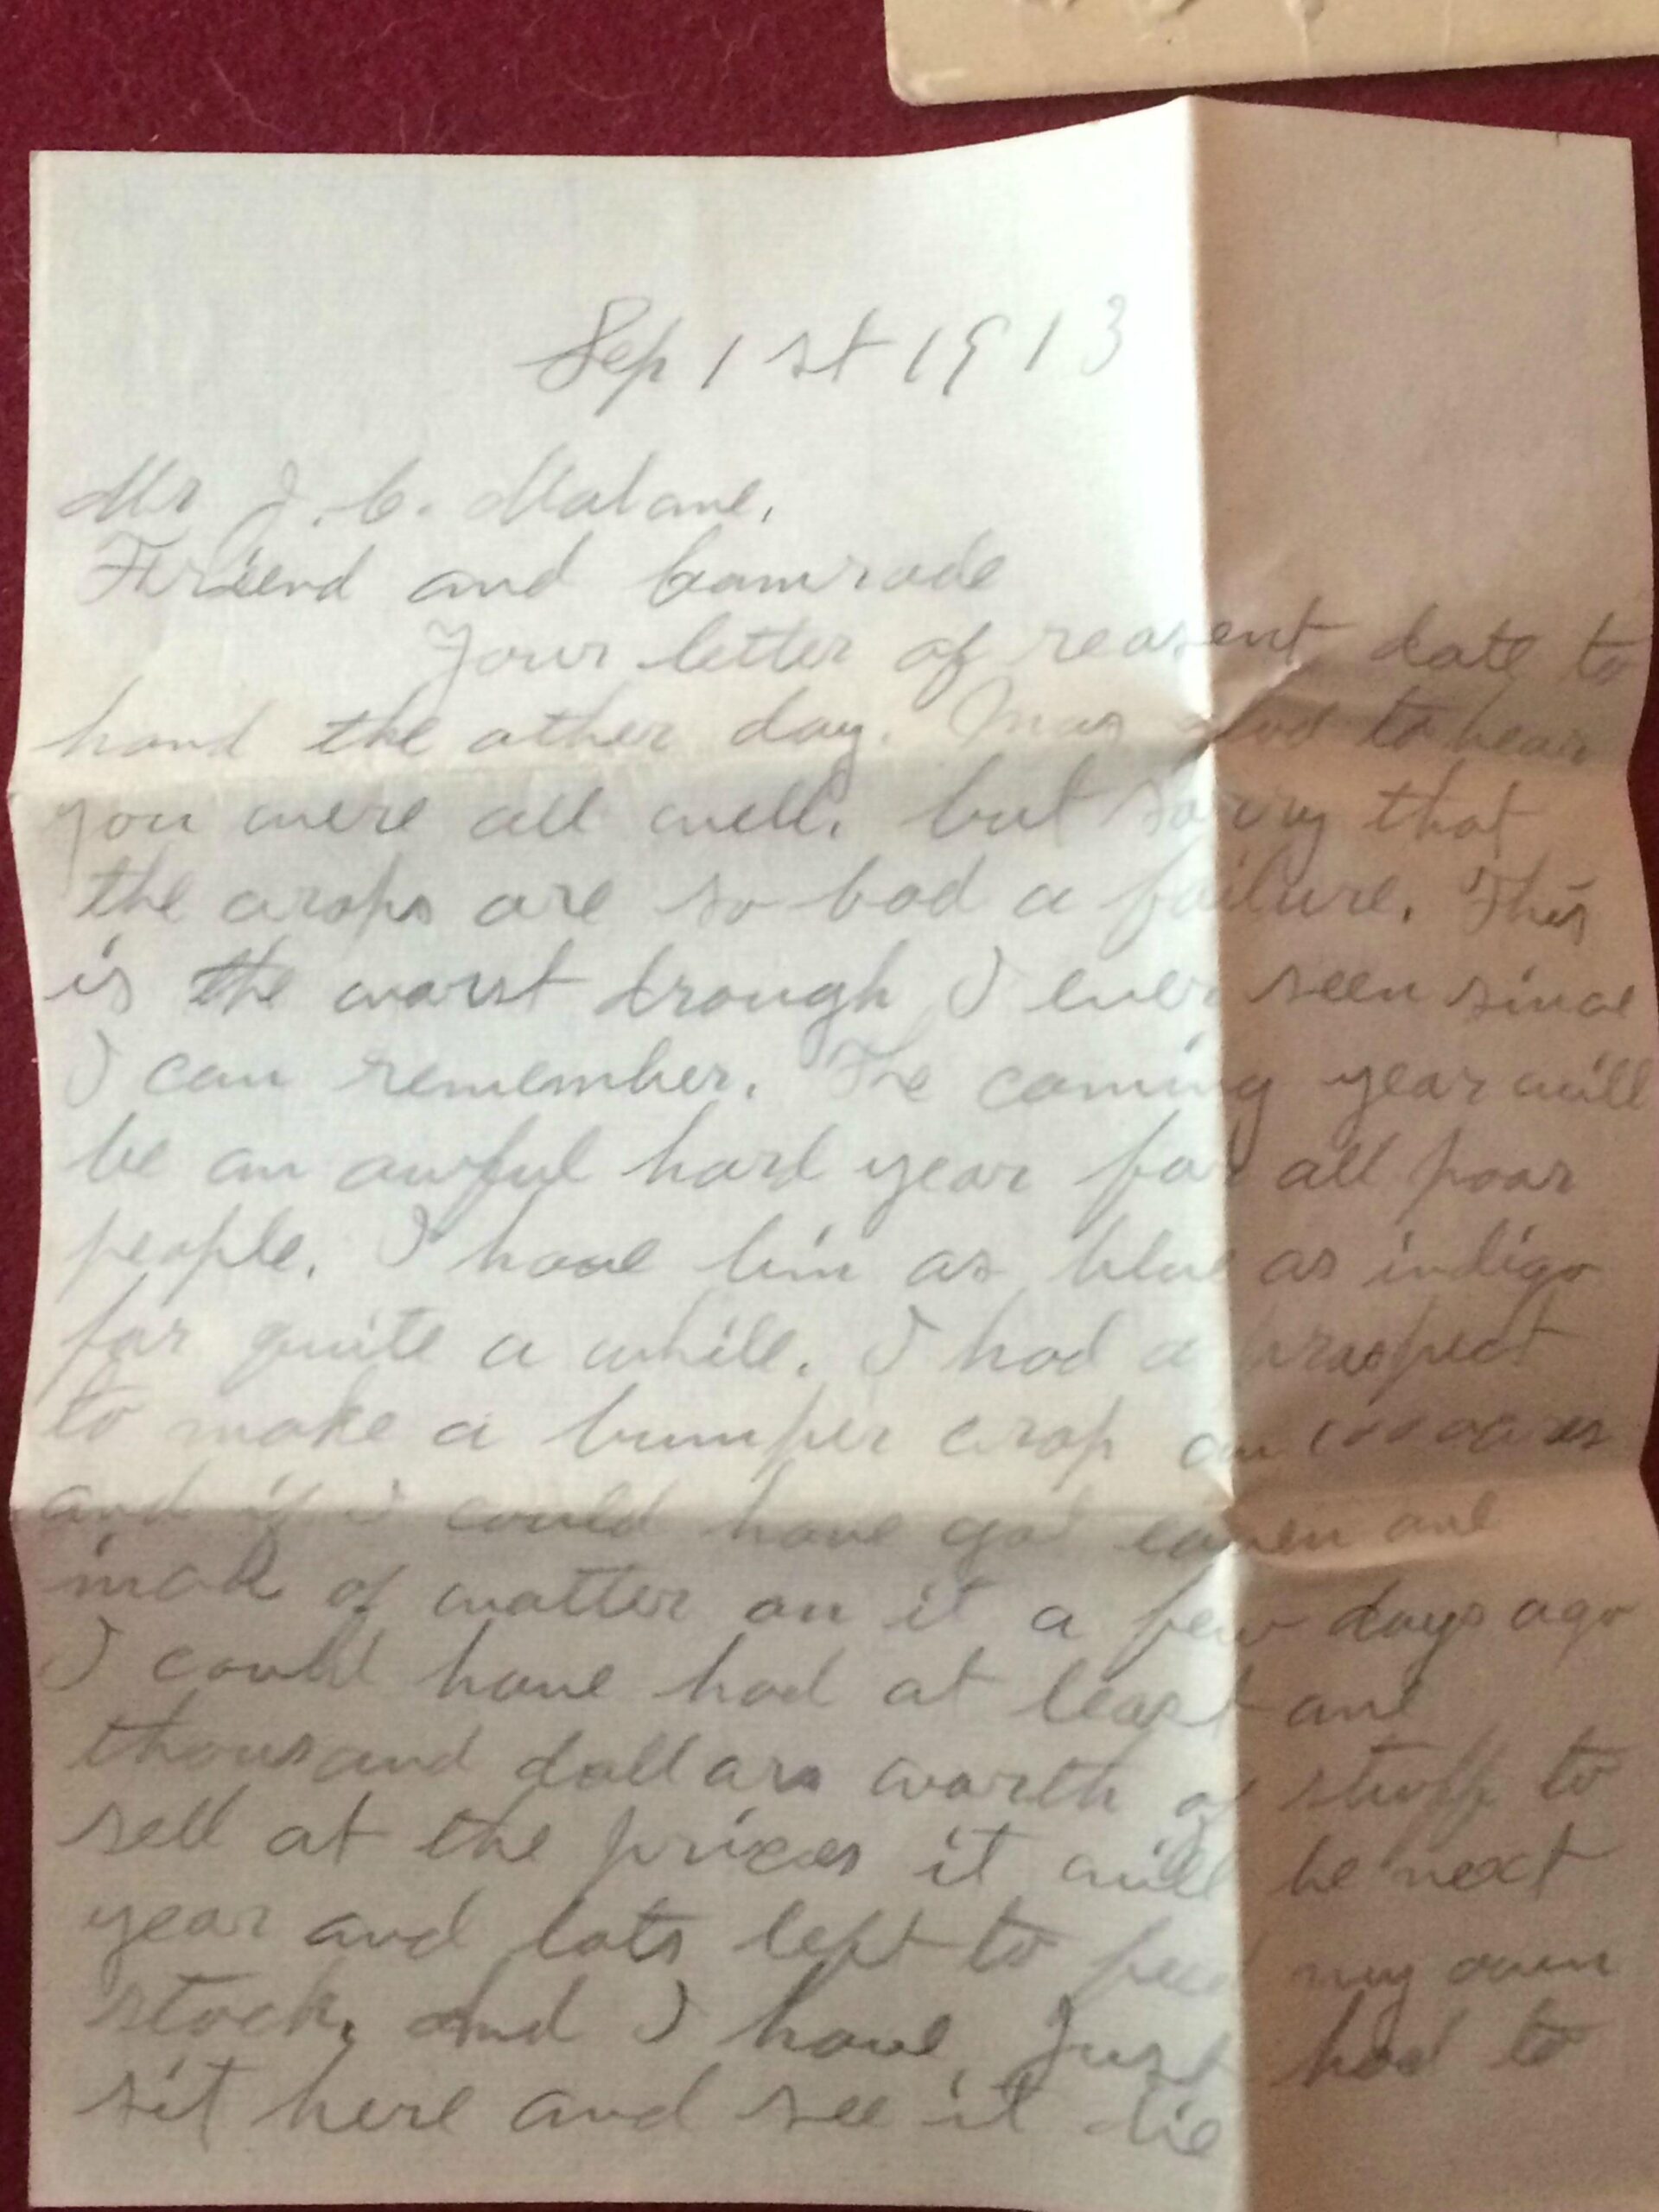 Sep 1 st 1913
Mr J. C. Malone,
Friend and Comrade
Your letter of reasent date to
hand the other day. Was glad to hear
you were all well, but sorry that
the crops are so bad a failure. This
is the worst drough I ever seen since
I can remember. The coming year will
be an awful hard year for all poor
people. I have bin as blue as indigo
for quite a while. I had a prospect
to make a bumper crop on 100 acres
and if I could have got eaven one
inch of watter on it a few days ago
I could have had at least one
thousand dollars worth of stuff to
sell at the prices it will be next
year and lots left to feed my own
stock, and I have Just had to
sit here and see it die